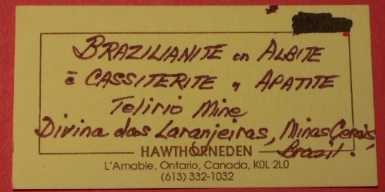 BRAZILIANITE on ALBITE
c̄ CASSITERITE & APATITE
Telirio Mine
Divina das Laranjeiras, Minas Gerais,
Brazil.
HAWTHORNEDEN
L'Amable, Ontario, Canada, K0L 2L0
(613) 332-1032